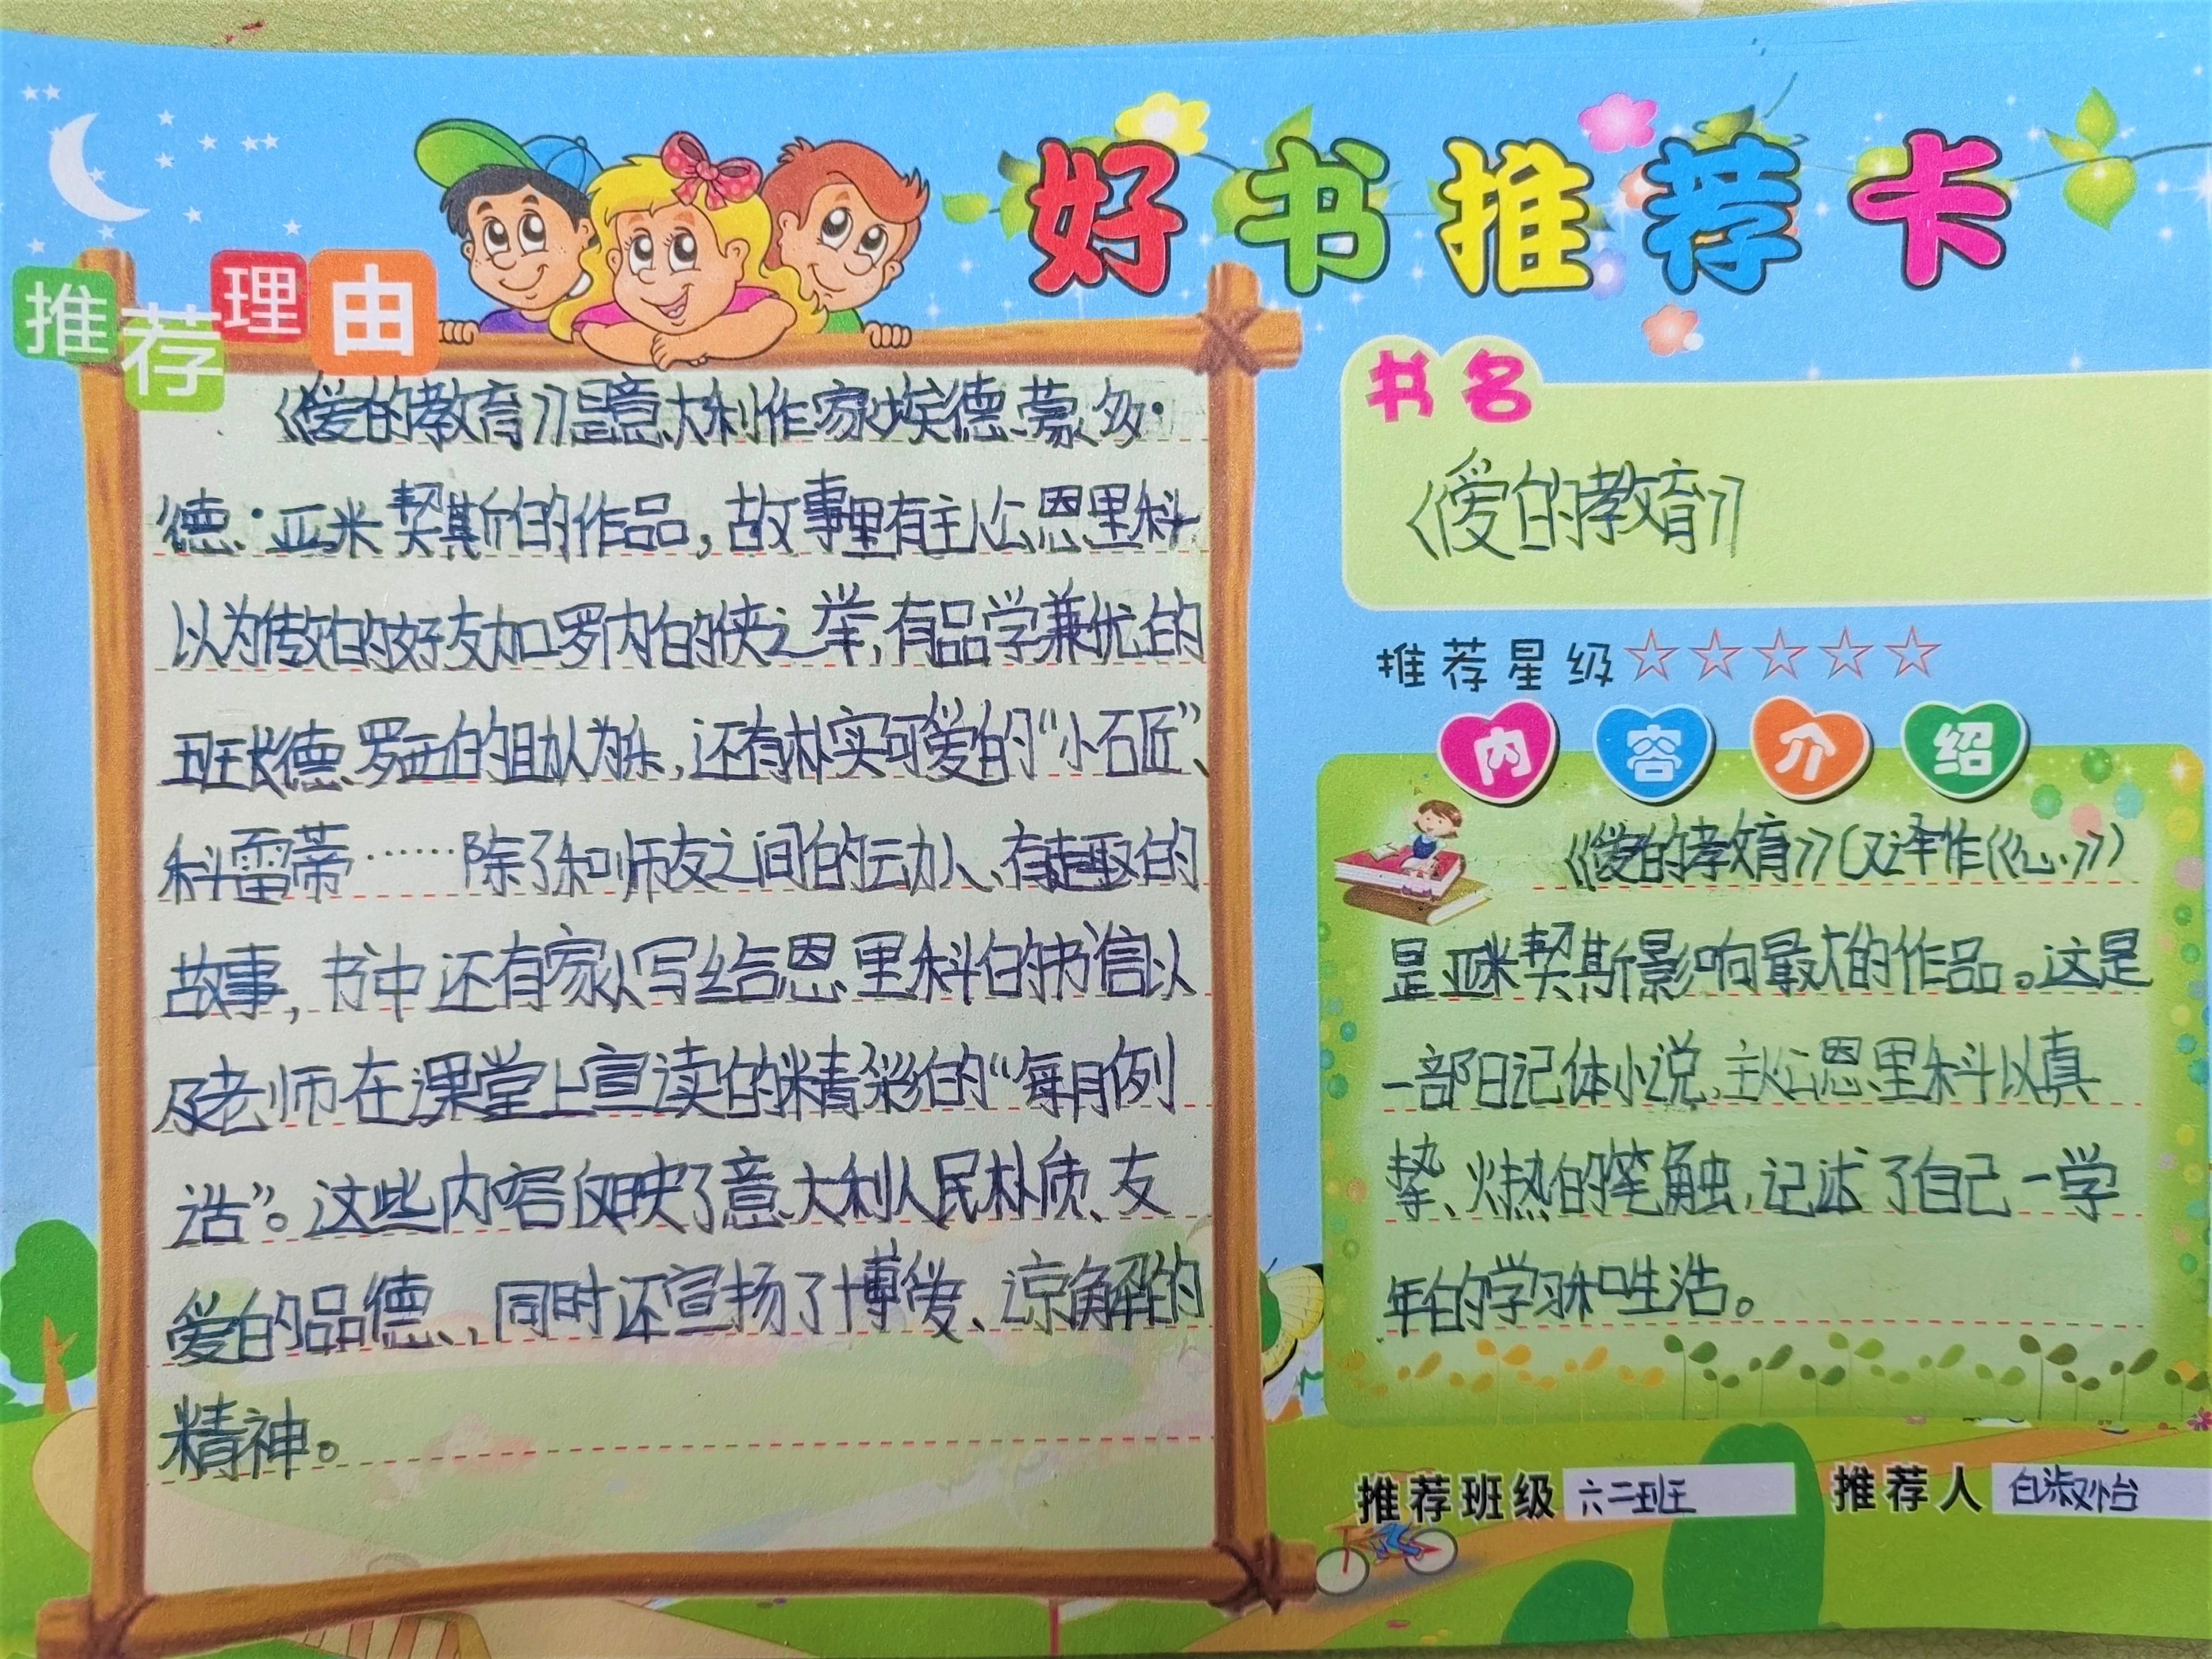 好书推荐卡
推荐理由
《爱的教育》是意大利作家埃德蒙多·
德·亚米契斯的作品,故事里有主人公恩里科
以为傲的好友加罗内的侠之举,有品学兼优的
班长德罗西的助人为乐,还有朴实可爱的“小石匠”、
科雷蒂……除了和师友之间的动人、有趣的
故事,书中还有家人写给恩里科的书信以
及老师在课堂上宣读的精彩的“每月例
话”。这些内容反映了意大利人民朴质、友
爱的品德,同时还宣扬了博爱、谅解的
精神。
书名
《爱的教育》
推荐星级☆☆☆☆☆
内容介绍
《爱的教育》(又译作《心》)
是亚米契斯影响最大的作品。这是
一部日记体小说,主人公恩里科以真
挚、炽热的笔触,记述了自己一学
年的学习和生活。
推荐班级 六二班
推荐人 白淑怡